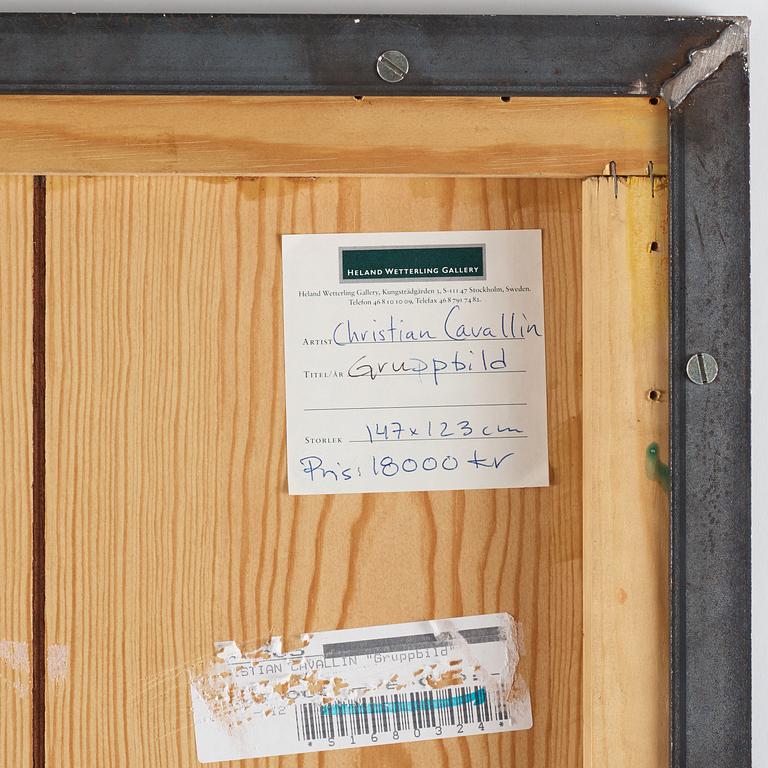 HELAND WETTERLING GALLERY
Heland Wetterling Gallery, Kungsträdgården 3, S-111 47 Stockholm, Sweden.
Telefon 46 8 10 10 09, Telefax 46 8 791 74 82.
ARTIST Christian Cavallin
TITEL/ÅR Gruppbild
STORLEK 147x123 cm
Pris: 18000 kr
STIAN CAVALLIN "Gruppbild"
-12
* 5 1 6 8 0 3 2 4 *